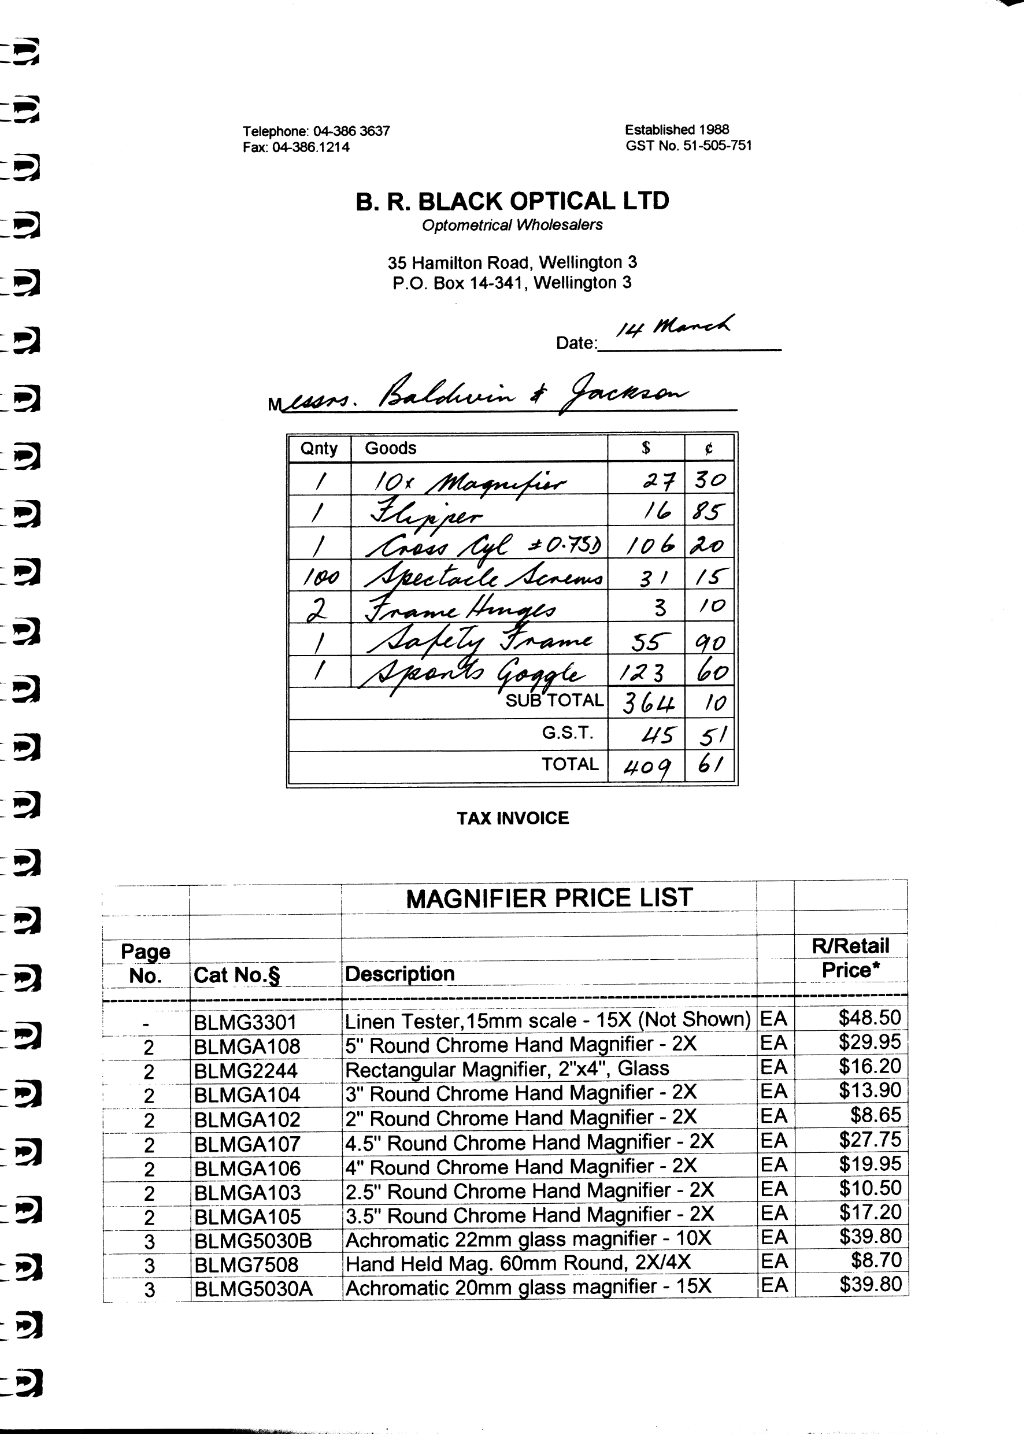 Telephone: 04-386 3637 Established 1988
Fax: 04-386.1214 GST No. 51-505-751
B. R. BLACK OPTICAL LTD
Optometrical Wholesalers
35 Hamilton Road, Wellington 3
P.O. Box 14-341, Wellington 3
Date: 14 March
Messrs. Baldwin & Jackson
Qnty Goods $ ¢
1 10x Magnifier 27 30
1 Flipper 16 85
1 Cross Cyl ±0.75D 106 20
100 Spectacle Screws 31 15
2 Frame Hinges 3 10
1 Safety Frame 55 90
1 Sports Goggle 123 60
SUB TOTAL 364 10
G.S.T. 45 51
TOTAL 409 61
TAX INVOICE
MAGNIFIER PRICE LIST
Page R/Retail
No. Cat No.§ Description Price*
- BLMG3301 Linen Tester,15mm scale - 15X (Not Shown) EA $48.50
2 BLMGA108 5" Round Chrome Hand Magnifier - 2X EA $29.95
2 BLMG2244 Rectangular Magnifier, 2"x4", Glass EA $16.20
2 BLMGA104 3" Round Chrome Hand Magnifier - 2X EA $13.90
2 BLMGA102 2" Round Chrome Hand Magnifier - 2X EA $8.65
2 BLMGA107 4.5" Round Chrome Hand Magnifier - 2X EA $27.75
2 BLMGA106 4" Round Chrome Hand Magnifier - 2X EA $19.95
2 BLMGA103 2.5" Round Chrome Hand Magnifier - 2X EA $10.50
2 BLMGA105 3.5" Round Chrome Hand Magnifier - 2X EA $17.20
3 BLMG5030B Achromatic 22mm glass magnifier - 10X EA $39.80
3 BLMG7508 Hand Held Mag. 60mm Round, 2X/4X EA $8.70
3 BLMG5030A Achromatic 20mm glass magnifier - 15X EA $39.80